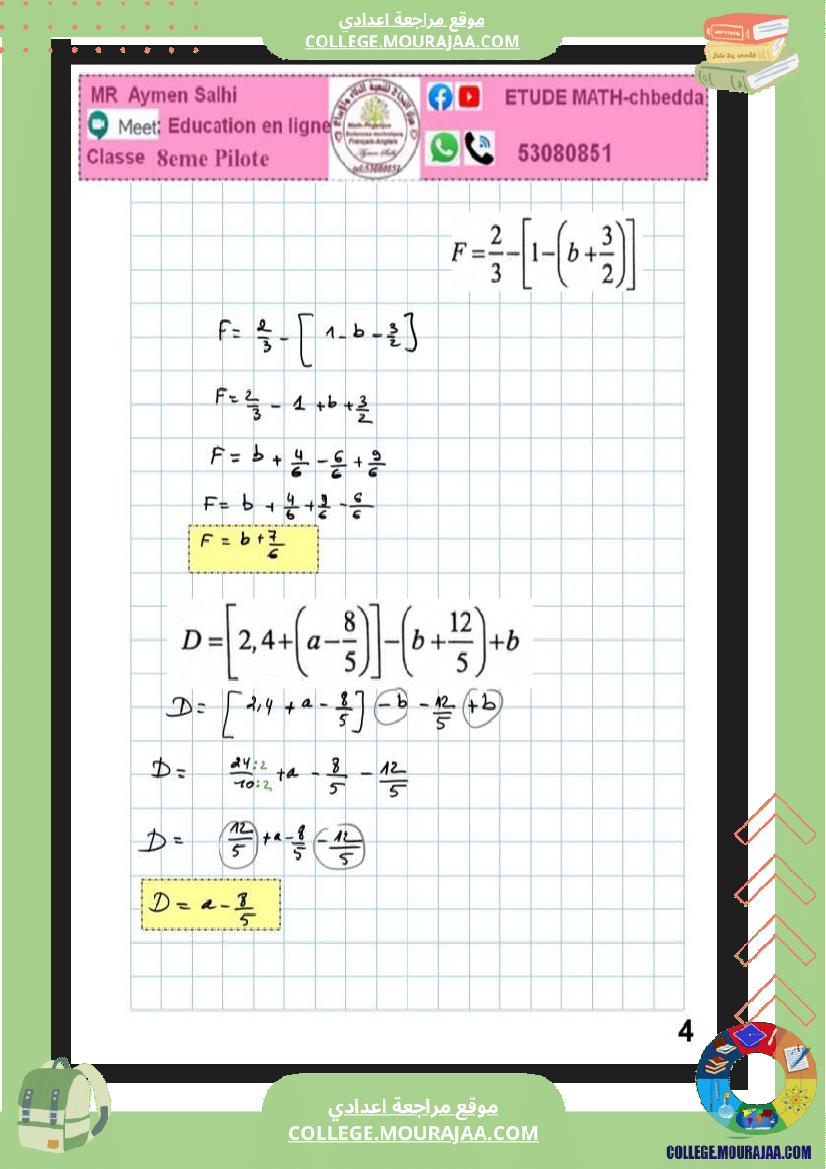 موقع مراجعة اعدادي
COLLEGE.MOURAJAA.COM
MR Aymen Salhi
Meet: Education en ligne
Classe 8eme Pilote
ETUDE MATH-chbedda
53080851
F = 2/3 - [1 - (b + 3/2)]
F = 2/3 - [1 - b - 3/2]
F = 2/3 - 1 + b + 3/2
F = b + 4/6 - 6/6 + 9/6
F = b + 4/6 + 9/6 - 6/6
F = b + 7/6
D = [2,4 + (a - 8/5)] - (b + 12/5) + b
D = [2,4 + a - 8/5] - b - 12/5 + b
D = 24:2/10:2 + a - 8/5 - 12/5
D = 12/5 + a - 8/5 - 12/5
D = a - 8/5
4
موقع مراجعة اعدادي
COLLEGE.MOURAJAA.COM
COLLEGE.MOURAJAA.COM